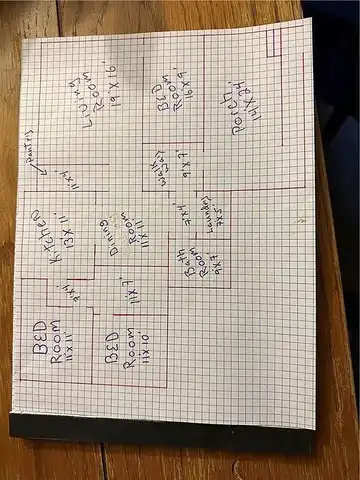 Living
Room
19'X16'
BED
Room
16x9'
Porch
14X24'
Pantry
11x4
Walk
Way
9x7'
Kitchen
13X11'
Dining
Room
11X11'
7x4'
Laundry
7x5'
Bath
Room
9x7
7x4'
11x7'
BED
ROOM
11x11'
BED
ROOM
11x10'